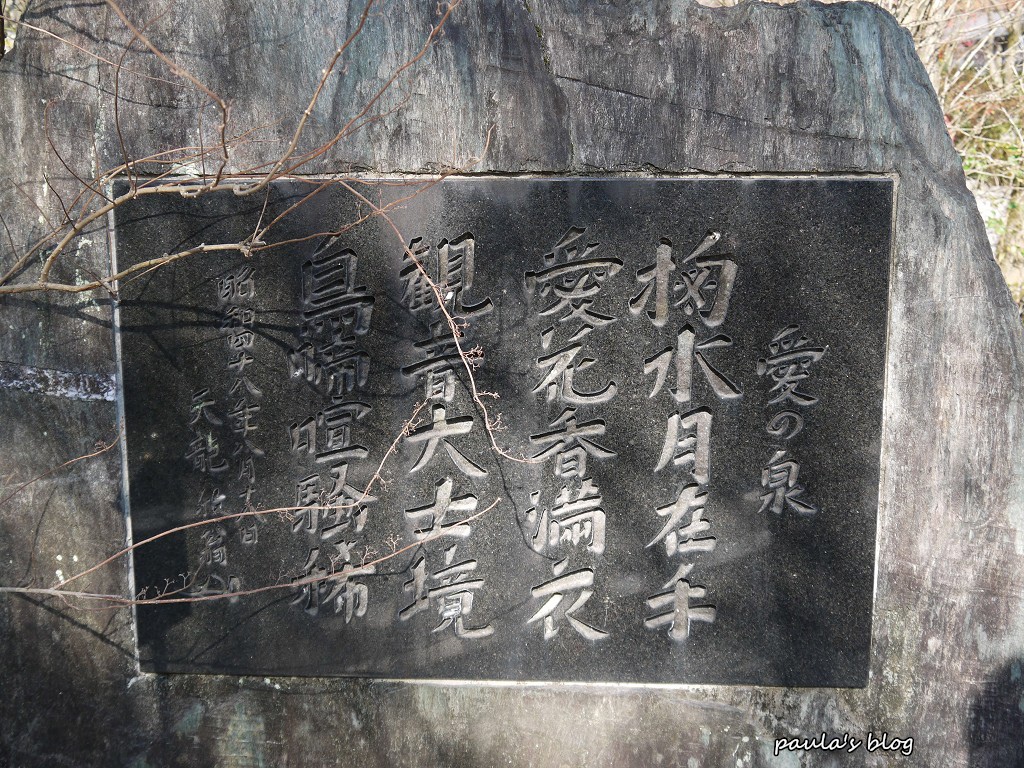 愛の泉
掬水月在手
愛花香満衣
観音大士境
鳥啼喧騒稀
昭和四十八年八月十六日
天龍 翁
paula's blog